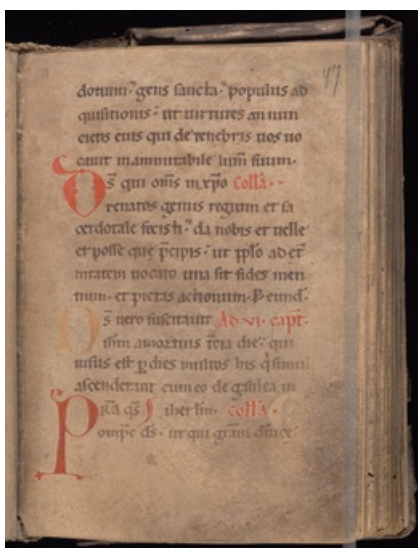 47
dotium· gens sancta· populus ad
quisitionis· ut uirtutes annun
cietis eius qui de tenebris uos uo
cauit in ammirabile lum̄ suum·
Ds̄ qui om̄s in xp̄o Colla·
renatos genus regium et sa
cerdotale fecisti· da nobis et uelle
et posse que p̄cipis· ut pp̄lo ad et̄
nitatem uocato una sit fides men
tium· et pietas actionum· P eund·
Ds̄ uero suscitauit Ad vi· capit̄·
tercia die· qui
uisus est p dies multos his q simul
ascenderant cum eo de galilea in
colla·
Ds· ut qui